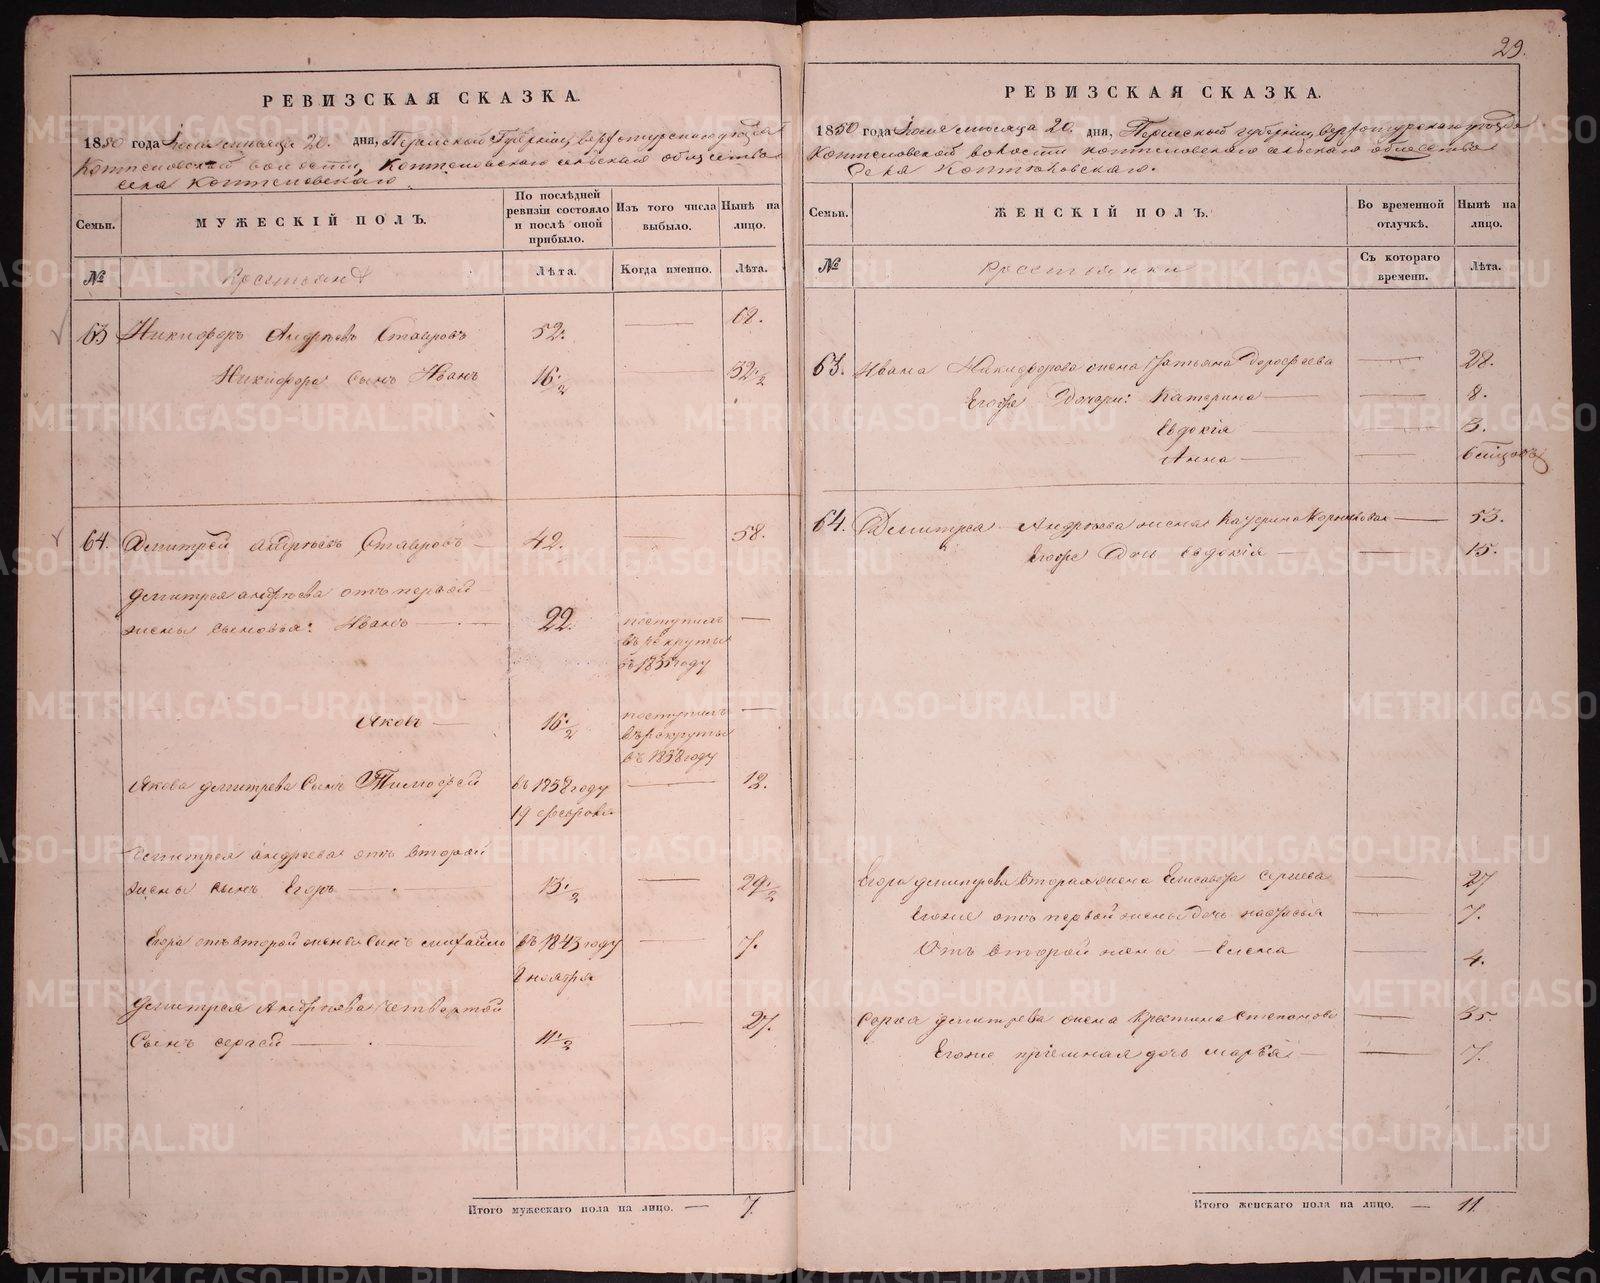 29.
РЕВИЗСКАЯ СКАЗКА.
1850 года Іюня мѣсяца 20. дня, Пермской Губерніи, верхотурскаго уѣзда
Коптеловской волости, Коптеловскаго сельскаго общества
села Коптеловскаго.
Семьи.
МУЖЕСКІЙ ПОЛЪ.
По послѣдней ревизіи состояло и послѣ оной прибыло.
Изъ того числа выбыло.
Нынѣ на лицо.
№
Крестьяне
Лѣта.
Когда именно.
Лѣта.
63 Никифоръ Андреевъ 52. 62.
Никифора сынъ Иванъ 16 1/2 32 1/2
64. Дмитрей андреевъ 42. 58.
Дмитрея андреева отъ первой
жены сыновья: Иванъ 22. поступилъ
въ рекруты
въ 1835 году
Яковъ 16 1/2 поступилъ
въ рекруты
въ 1838 году
Якова дмитрева сынъ Тимофей въ 1838 году 12.
19 февраля
Дмитрея андреева отъ второй
жены сынъ Егоръ 13 1/2 29 1/2
Егора отъ второй жены сынъ михайло въ 1843 году 7.
8 ноября
Дмитрея Андреева четвертой 27.
Сынъ сергей 11 1/2
Итого мужескаго пола на лицо. — 7.
РЕВИЗСКАЯ СКАЗКА.
1850 года Іюня мѣсяца 20. дня, Пермской губерніи, верхотурскаго уѣзда
Коптеловской волости коптеловскаго сельскаго общества
Села Коптеловскаго.
Семьи.
ЖЕНСКІЙ ПОЛЪ.
Во временной отлучкѣ.
Нынѣ на лицо.
№
Крестьянки
Съ котораго времени.
Лѣта.
63. Ивана Никифорова жена Татьяна Дорофеева 28.
Егоже Дочери: Катерина 8.
Евдокія 3.
Анна 6 мѣсяцовъ
64. Дмитрея Андреева жена Катерина 53.
Егоже Дочь евдокія 15.
Егора дмитрева вторая жена Елисавета сергиева 27
Егоже отъ первой жены дочь настасья 7.
Отъ второй жены — елена 4.
дмитрева жена Крестина степанова 35.
Егоже дочь марья 7.
Итого женскаго пола на лицо. — 11.
METRIKI.GASO-URAL.RU